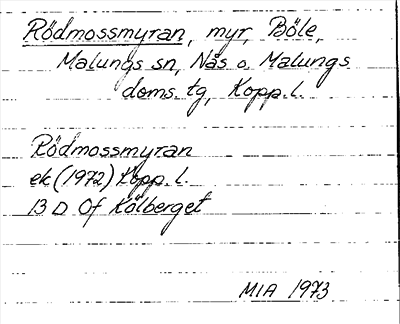 Rödmossmyran, myr, Böle,
Malungs sn, Nås o. Malungs
doms. tg, Kopp. l.
Rödmossmyran
ek (1972) Kopp. l.
13 D 0f Kölberget
MIA 1973